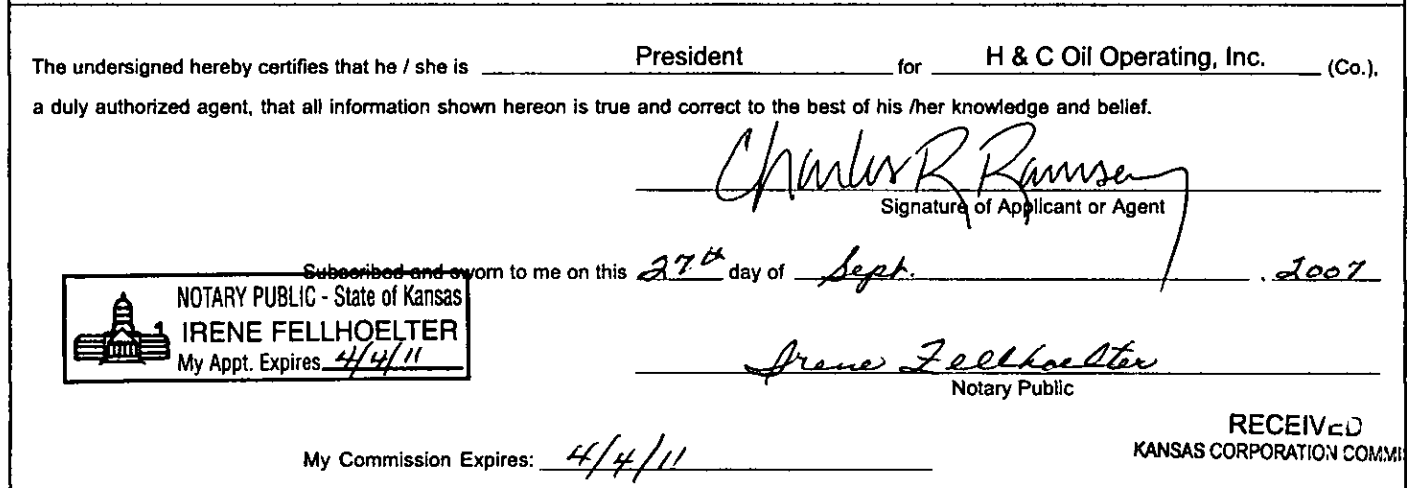 The undersigned hereby certifies that he / she is President for H & C Oil Operating, Inc. (Co.),
a duly authorized agent, that all information shown hereon is true and correct to the best of his /her knowledge and belief.
Charles R Ramsey
Signature of Applicant or Agent
Subscribed and sworn to me on this 27th day of Sept. , 2007
NOTARY PUBLIC - State of Kansas
IRENE FELLHOELTER
My Appt. Expires 4/4/11
Irene Fellhoelter
Notary Public
RECEIVED
My Commission Expires: 4/4/11
KANSAS CORPORATION COMMI